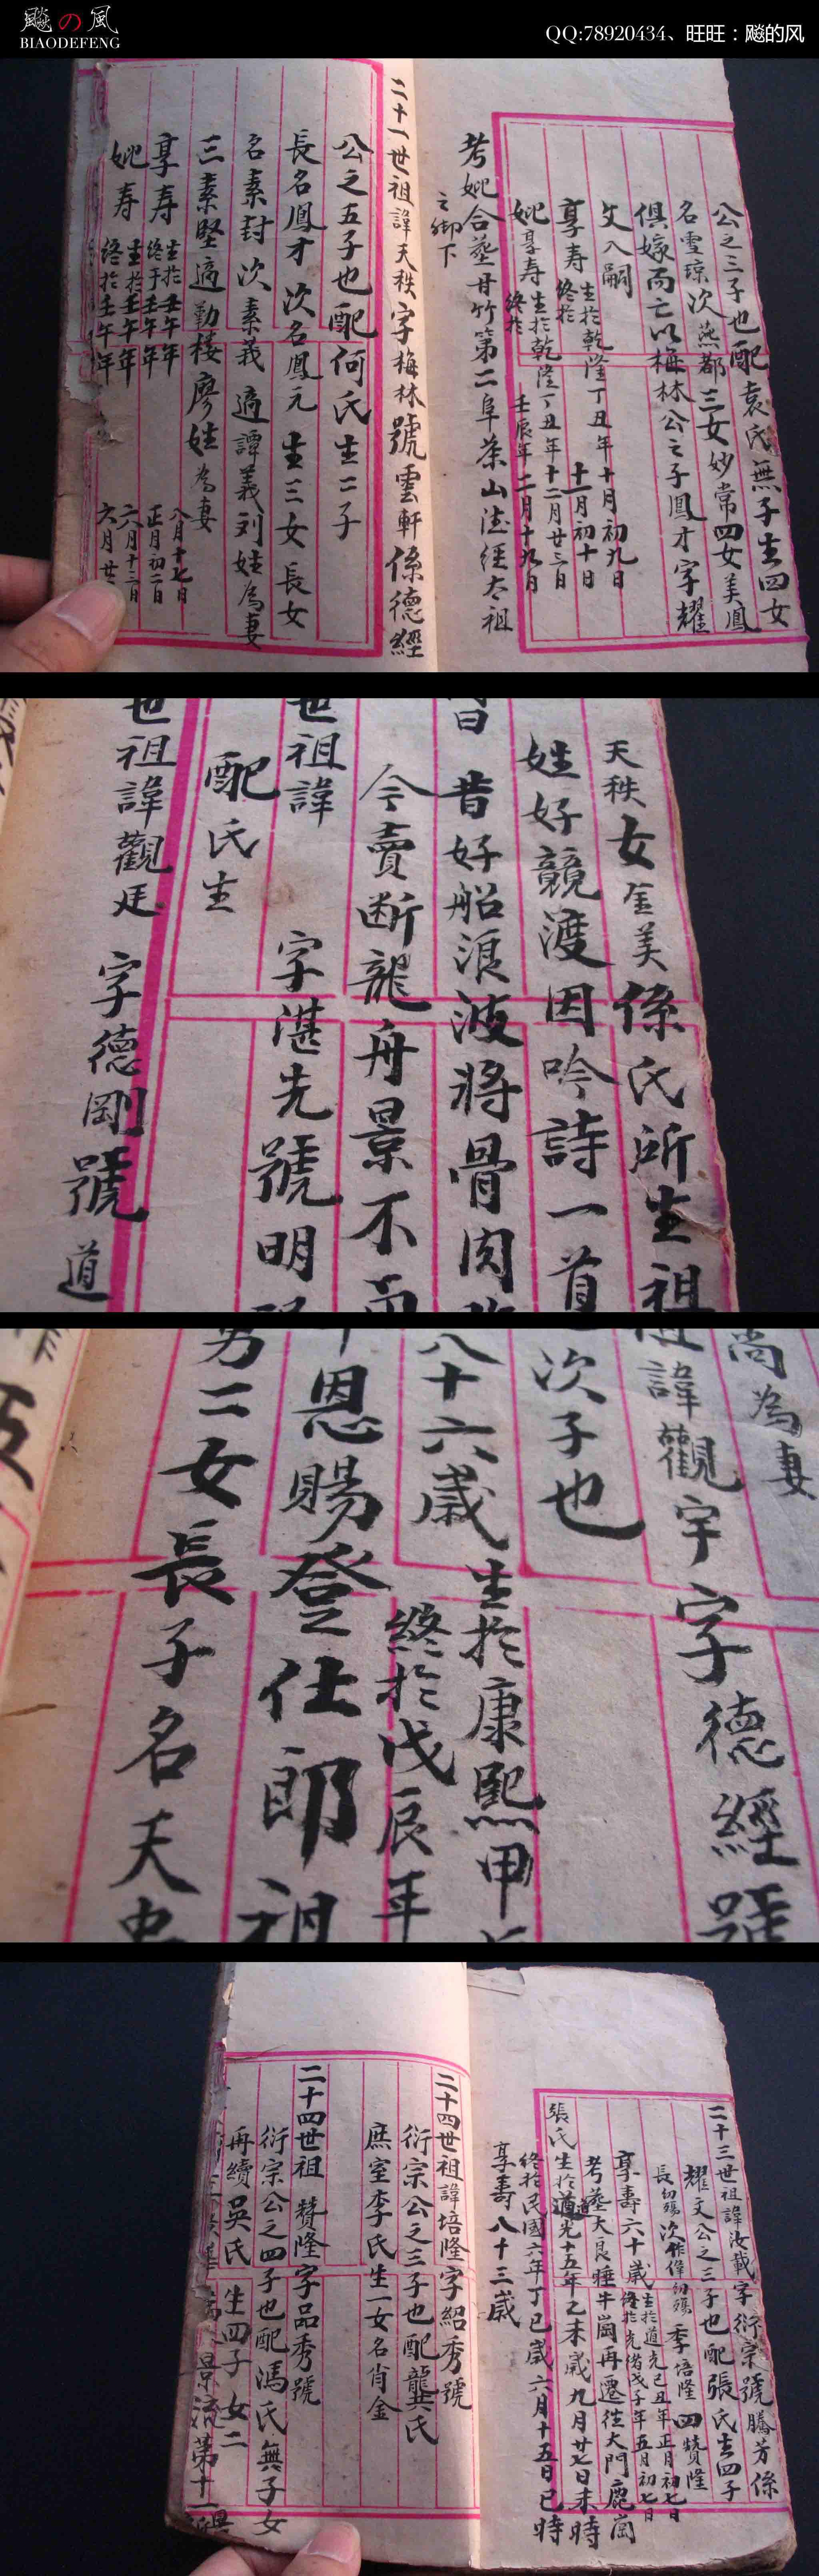 飈の風
BIAODEFENG
QQ:78920434、旺旺：飚的风
公之三子也配袁氏無子生四女
名雪琼次燕都三女妙常四女美鳳
俱嫁而亡以梅林公之子鳳才字耀
文入嗣
享寿生於乾隆丁丑年十月初九日
終於十一月初十日
妣享寿生於乾隆丁丑年十二月廿三日
終於壬辰年二月十九日
考妣合塟甘竹第二阜茶山德經太祖
之脚下
二十一世祖諱天秩字梅林號雲軒係德經
公之五子也配何氏生二子
長名鳳才次名鳳元生三女長女
名素封次素義適譚義刘姓為妻
三素堅適勤楼廖姓為妻
享寿生於丑午年八月十七日
終于壬午年正月初二日
妣寿生於壬午年六月十二日
終於壬午年六月廿
天秩女金美係氏所生祖
姓好競渡因吟詩一首
昔好船浪波將骨肉
今賣断龍舟景不
世祖諱字湛先號明
配氏生
世祖諱觀廷字德剛號道
尚為妻
諱觀宇字德經號
次子也
八十六歲生於康熙甲
終於戊辰年
恩賜登仕郎祖
男二女長子名天
二十三世祖諱汝載字衍宗號騰芳係
耀文公之三子也配張氏生四子
長幼殤次作偉幼殤季培隆四贊隆
享壽六十歲生於道光己丑年正月初七日
終於光緒戊子年五月初七日
考塟大良睡牛崗再遷往大門鹿崗
張氏生於道光十五年乙未歲九月廿七日未時
終於民國六年丁巳歲六月十五日巳時
享壽八十三歲
二十四世祖諱培隆字紹秀號
衍宗公之三子也配龔氏
庶室李氏生一女名肖金
二十四世祖贊隆字品秀號
衍宗公之四子也配馮氏無子女
再續吳氏生四子女二
景流第十